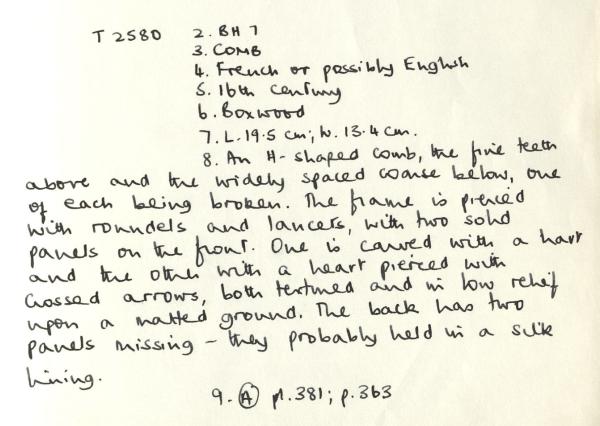 T 2580 2. BH 7
3. COMB
4. French or possibly English
5. 16th century
6. Boxwood
7. L. 19.5 cm; W. 13.4 cm.
8. An H-shaped comb, the fine teeth
above and the widely spaced coarse below, one
of each being broken. The frame is pierced
with roundels and lancets, with two solid
panels on the front. One is carved with a hart
and the other with a heart pierced with
crossed arrows, both textured and in low relief
upon a matted ground. The back has two
panels missing – they probably held in a silk
lining.
9. A pl. 381; p. 363